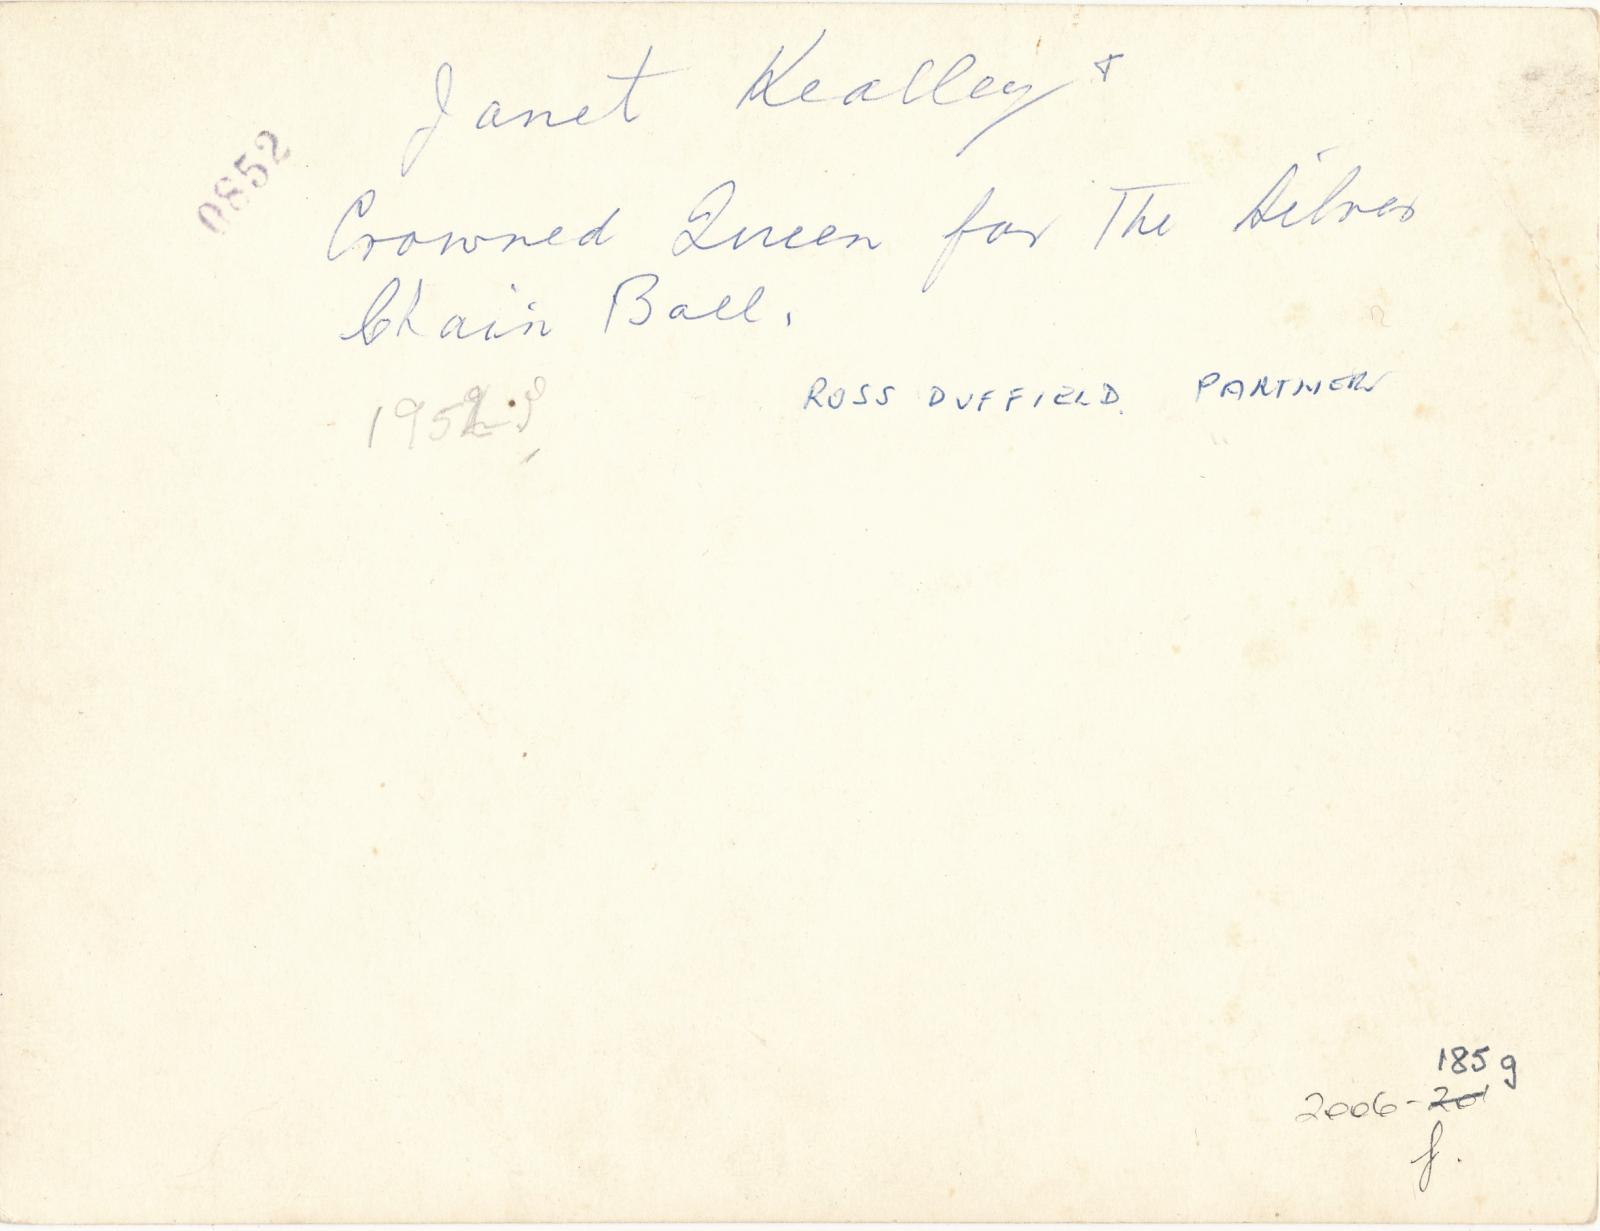 0852
Janet Kealley +
Crowned Queen for The Silver
Chain Ball.
ROSS DUFFIELD. PARTNER
185 g
2006-201
f.